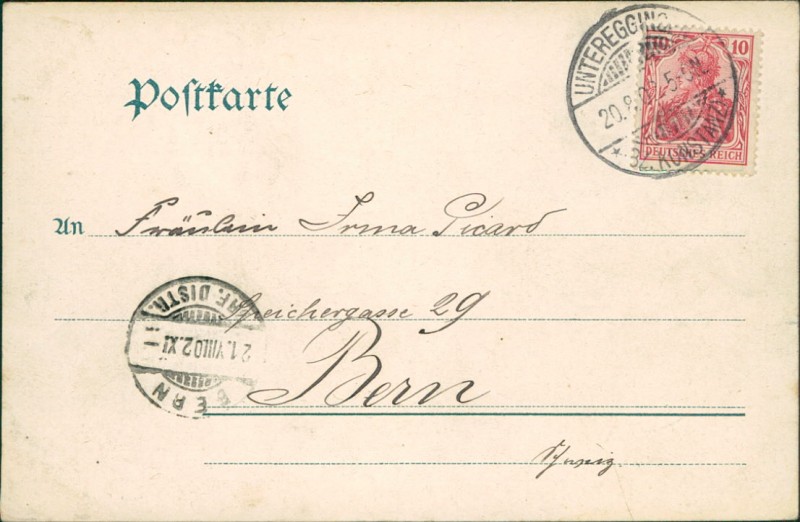 Postkarte
UNTEREGGING
20.8.02 5-6N.
* KONSTANZ *
10
DEUTSCHES REICH
An Fräulein Irma Picard
Speichergasse 29
Bern
Schweiz
BRF. DISTR.
21.VIII.02.XI
BERN